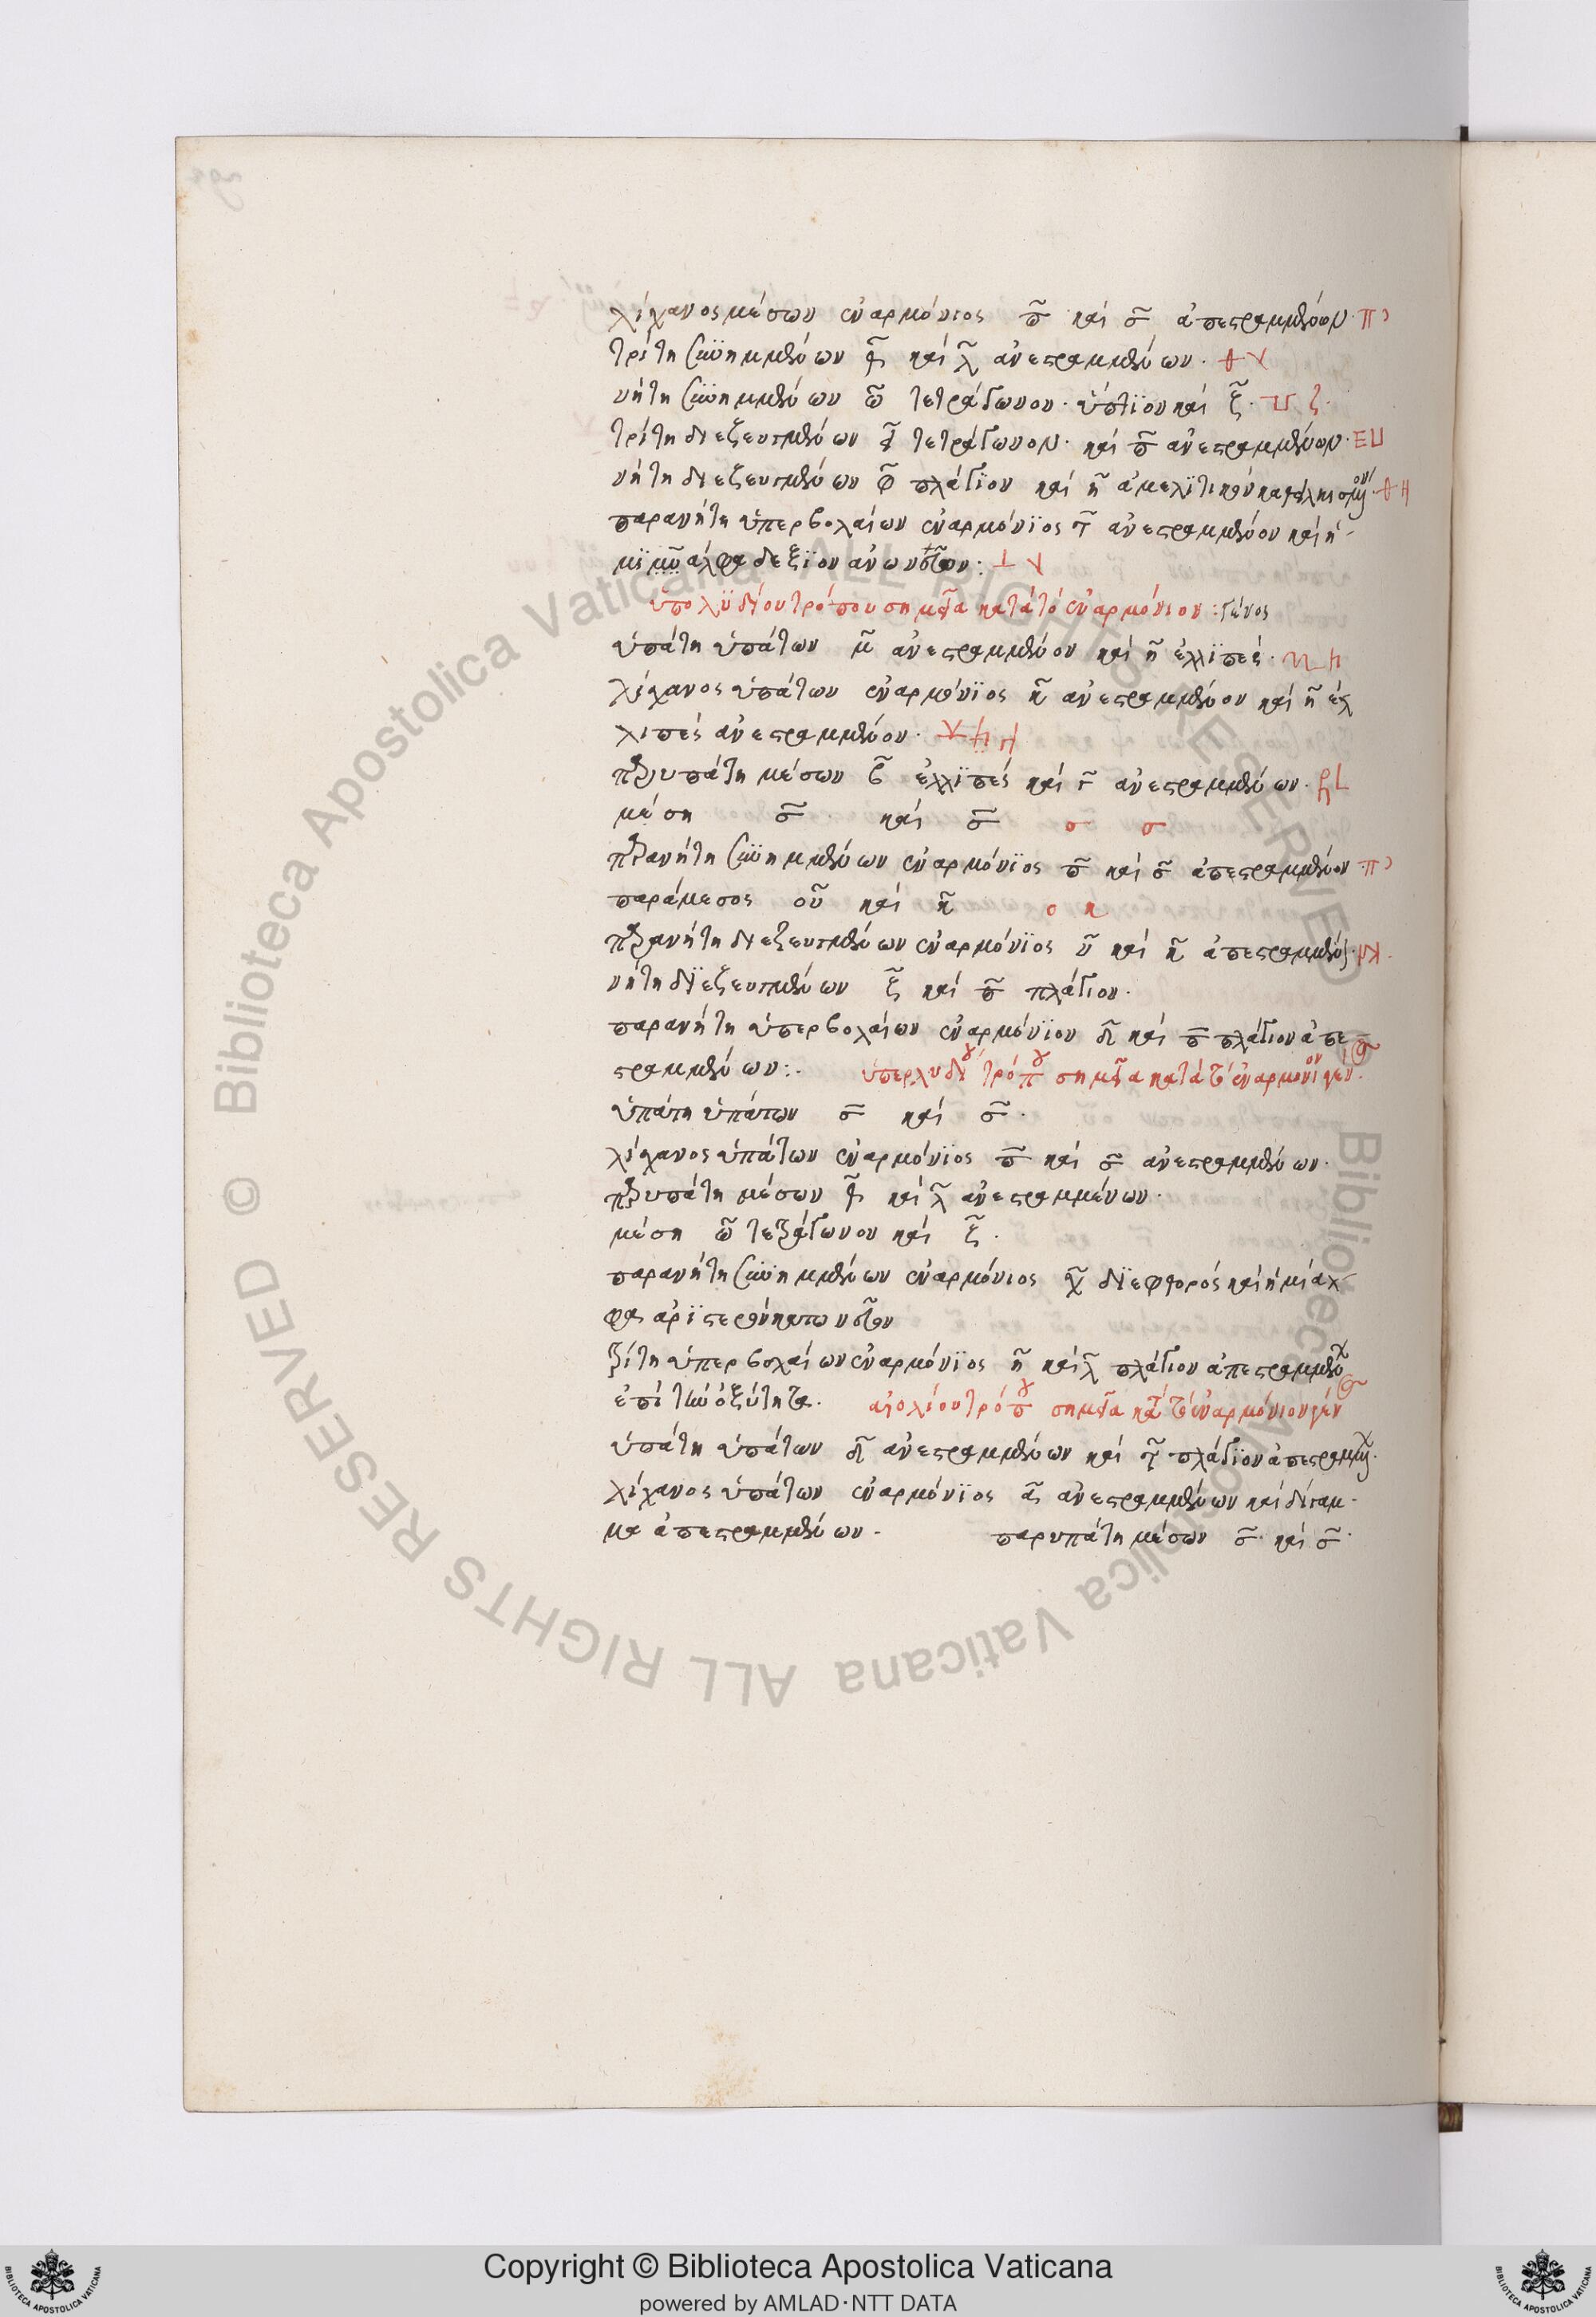 λίχανος μέσων ἐναρμόνιος π̄ καὶ σ̄ ἀπεστραμμένον· π ͻ
τρίτη συνημμένων φ̄ καὶ λ̄ ἀνεστραμμένων·
νήτη συνημμένων ω̄ τετράγωνον· ὕπτϊον καὶ ζ̄·
τρίτη διεζευγμένων ε̄ τετράγωνον· καὶ π̄ ἀνεστραμμένον· Ε
νήτη διεζευγμένων φ̄ πλάγϊον καὶ η̄ ἀμελϊτικὸν
παρανήτη ὑπερβολαίων ἐναρμόνϊος τ̄ ἀνεστραμμένον καὶ ἡ
μϊ ἄλφα δεξϊὸν ἄνω νεῦον:
ὑπολϋδίου τρόπου σημεῖα κατὰ τὸ ἐναρμόνιον: γένος
ὑπάτη ὑπάτων μ̄ ἀνεστραμμένον καὶ η̄ ἐλλϊπές·
λίχανος ὑπάτων ἐναρμόνϊος η̄ ἀνεστραμμένον καὶ η̄ ἐλ
λιπὲς ἀνεστραμμένον·
παρυπάτη μέσων β̄ ἐλλϊπές καὶ γ̄ ἀνεστραμμένων·
μέση σ̄ καὶ σ̄ σ σ
παρανήτη συνημμένων ἐναρμόνϊος π̄ καὶ σ̄ ἀπεστραμμένον π ͻ
παράμεσος οῦ καὶ κ̄ ο κ
παρανήτη διεζευγμένων ἐναρμόνϊος ῡ καὶ κ̄ ἀπεστραμμέν
νήτη δϊεζευγμένων ξ̄ καὶ π̄ πλάγιον·
παρανήτη ὑπερβολαίων ἐναρμόνϊον δ̄ καὶ π̄ πλάγιον ἀπε
στραμμένων:· ὑπερλυδίου τρόπου σημεῖα κατὰ τὸ ἐναρμόνιον γένος
ὑπάτη ὑπάτων σ̄ καὶ σ̄·
λίχανος ὑπάτων ἐναρμόνϊος π̄ καὶ σ̄ ἀνεστραμμένων·
παρυπάτη μέσων φ̄ καὶ λ̄ ἀνεστραμμένων·
μέση ω̄ τετράγωνον καὶ ζ̄·
παρανήτη συνημμένων ἐναρμόνιος χ̄ δϊεφθορὸς καὶ ἡμίαλ
φα ἀρϊστερὸν κάτω νεῦον
τρίτη ὑπερβολαίων ἐναρμόνϊος η̄ καὶ λ̄ πλάγιον ἀπεστραμμένον
ἐπὶ τὴν ὀξύτητα· αἰολίου τρόπου σημεῖα κατὰ τὸ ἐναρμόνιον γένος
ὑπάτη ὑπάτων δ̄ ἀνεστραμμένων καὶ τ̄ πλάγϊον ἀπεστραμμένον·
λίχανος ὑπάτων ἐναρμόνϊος ᾱ ἀνεστραμμένων καὶ δίγαμ
μα ἀπεστραμμένων· παρυπάτη μέσων σ̄ καὶ σ̄·
Copyright © Biblioteca Apostolica Vaticana
powered by AMLAD·NTT DATA